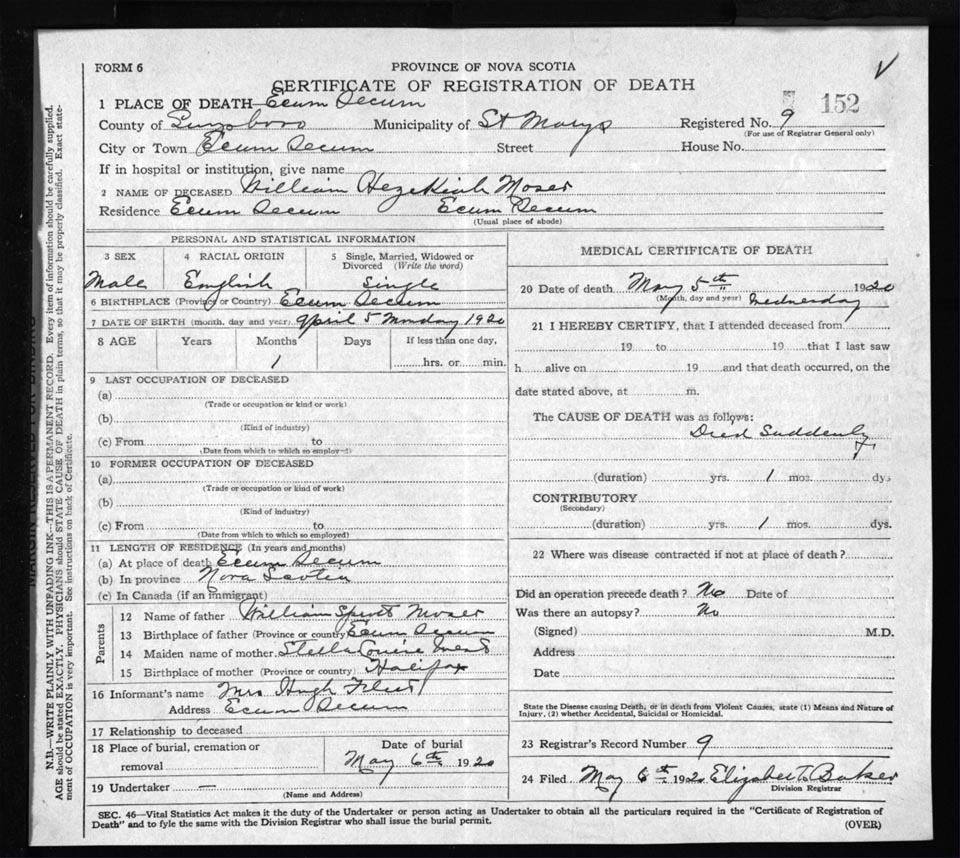 FORM 6
PROVINCE OF NOVA SCOTIA
CERTIFICATE OF REGISTRATION OF DEATH
152
1 PLACE OF DEATH Ecum Secum
County of Municipality of St Marys Registered No. 9
(For use of Registrar General only)
City or Town Ecum Secum Street House No.
If in hospital or institution, give name
2 NAME OF DECEASED William Hezekiah Moser
Residence Ecum Secum Ecum Secum
(Usual place of abode)
PERSONAL AND STATISTICAL INFORMATION
3 SEX 4 RACIAL ORIGIN 5 Single, Married, Widowed or Divorced (Write the word)
Male English Single
6 BIRTHPLACE (Province or Country) Ecum Secum
7 DATE OF BIRTH (month, day and year) April 5 Monday 1920
8 AGE Years Months Days If less than one day,
1 hrs. or min.
9 LAST OCCUPATION OF DECEASED
(a)
(Trade or occupation or kind or work)
(b)
(Kind of industry)
(c) From to
(Date from which to which so employed)
10 FORMER OCCUPATION OF DECEASED
(a)
(Trade or occupation or kind of work)
(b)
(Kind of industry)
(c) From to
(Date from which to which so employed)
11 LENGTH OF RESIDENCE (In years and months)
(a) At place of death Ecum Secum
(b) In province Nova Scotia
(c) In Canada (if an immigrant)
Parents
12 Name of father William Moser
13 Birthplace of father (Province or country) Ecum Secum
14 Maiden name of mother Stella Louise
15 Birthplace of mother (Province or country) Halifax
16 Informant's name Mrs Hugh
Address Ecum Secum
17 Relationship to deceased
18 Place of burial, cremation or removal Date of burial
May 6th 1920
19 Undertaker —
(Name and Address)
MEDICAL CERTIFICATE OF DEATH
20 Date of death May 5th 1920
(Month, day and year) Wednesday
21 I HEREBY CERTIFY, that I attended deceased from
19 to 19 that I last saw
h alive on 19 and that death occurred, on the
date stated above, at m.
The CAUSE OF DEATH was as follows:
Died Suddenly
(duration) yrs. 1 mos. dys
CONTRIBUTORY
(Secondary)
(duration) yrs. 1 mos. dys.
22 Where was disease contracted if not at place of death?
Did an operation precede death? No Date of
Was there an autopsy? No
(Signed) M.D.
Address
Date
State the Disease causing Death, or in death from Violent Causes, state (1) Means and Nature of
Injury, (2) whether Accidental, Suicidal or Homicidal.
23 Registrar's Record Number 9
24 Filed May 6th 1920 Elizabeth Baker
Division Registrar
SEC. 46—Vital Statistics Act makes it the duty of the Undertaker or person acting as Undertaker to obtain all the particulars required in the "Certificate of Registration of
Death" and to fyle the same with the Division Registrar who shall issue the burial permit.
(OVER)
N.B.—WRITE PLAINLY WITH UNFADING INK—THIS IS A PERMANENT RECORD. Every item of information should be carefully supplied.
AGE should be stated EXACTLY. PHYSICIANS should STATE CAUSE OF DEATH in plain terms, so that it may be properly classified. Exact state-
ment of OCCUPATION is very important. See instructions on back of Certificate.
MARGIN RESERVED FOR BINDING